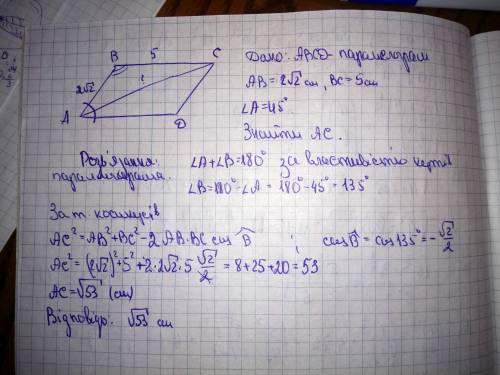 B 5 C
2√2
A
D
Дано: ABCD - паралелограм
AB = 2√2 см, BC = 5 см
∠A = 45°
Знайти AC.
Розв'язання: ∠A + ∠B = 180° за властивістю кутів
паралелограма. ∠B = 180° - ∠A = 180° - 45° = 135°
За т. косинусів
AC² = AB² + BC² - 2 AB·BC cos B̂ ; cos B̂ = cos 135° = -√2/2
AC² = (2√2)² + 5² + 2·2√2·5 √2/2 = 8 + 25 + 20 = 53
AC = √53 (см)
Відповідь: √53 см